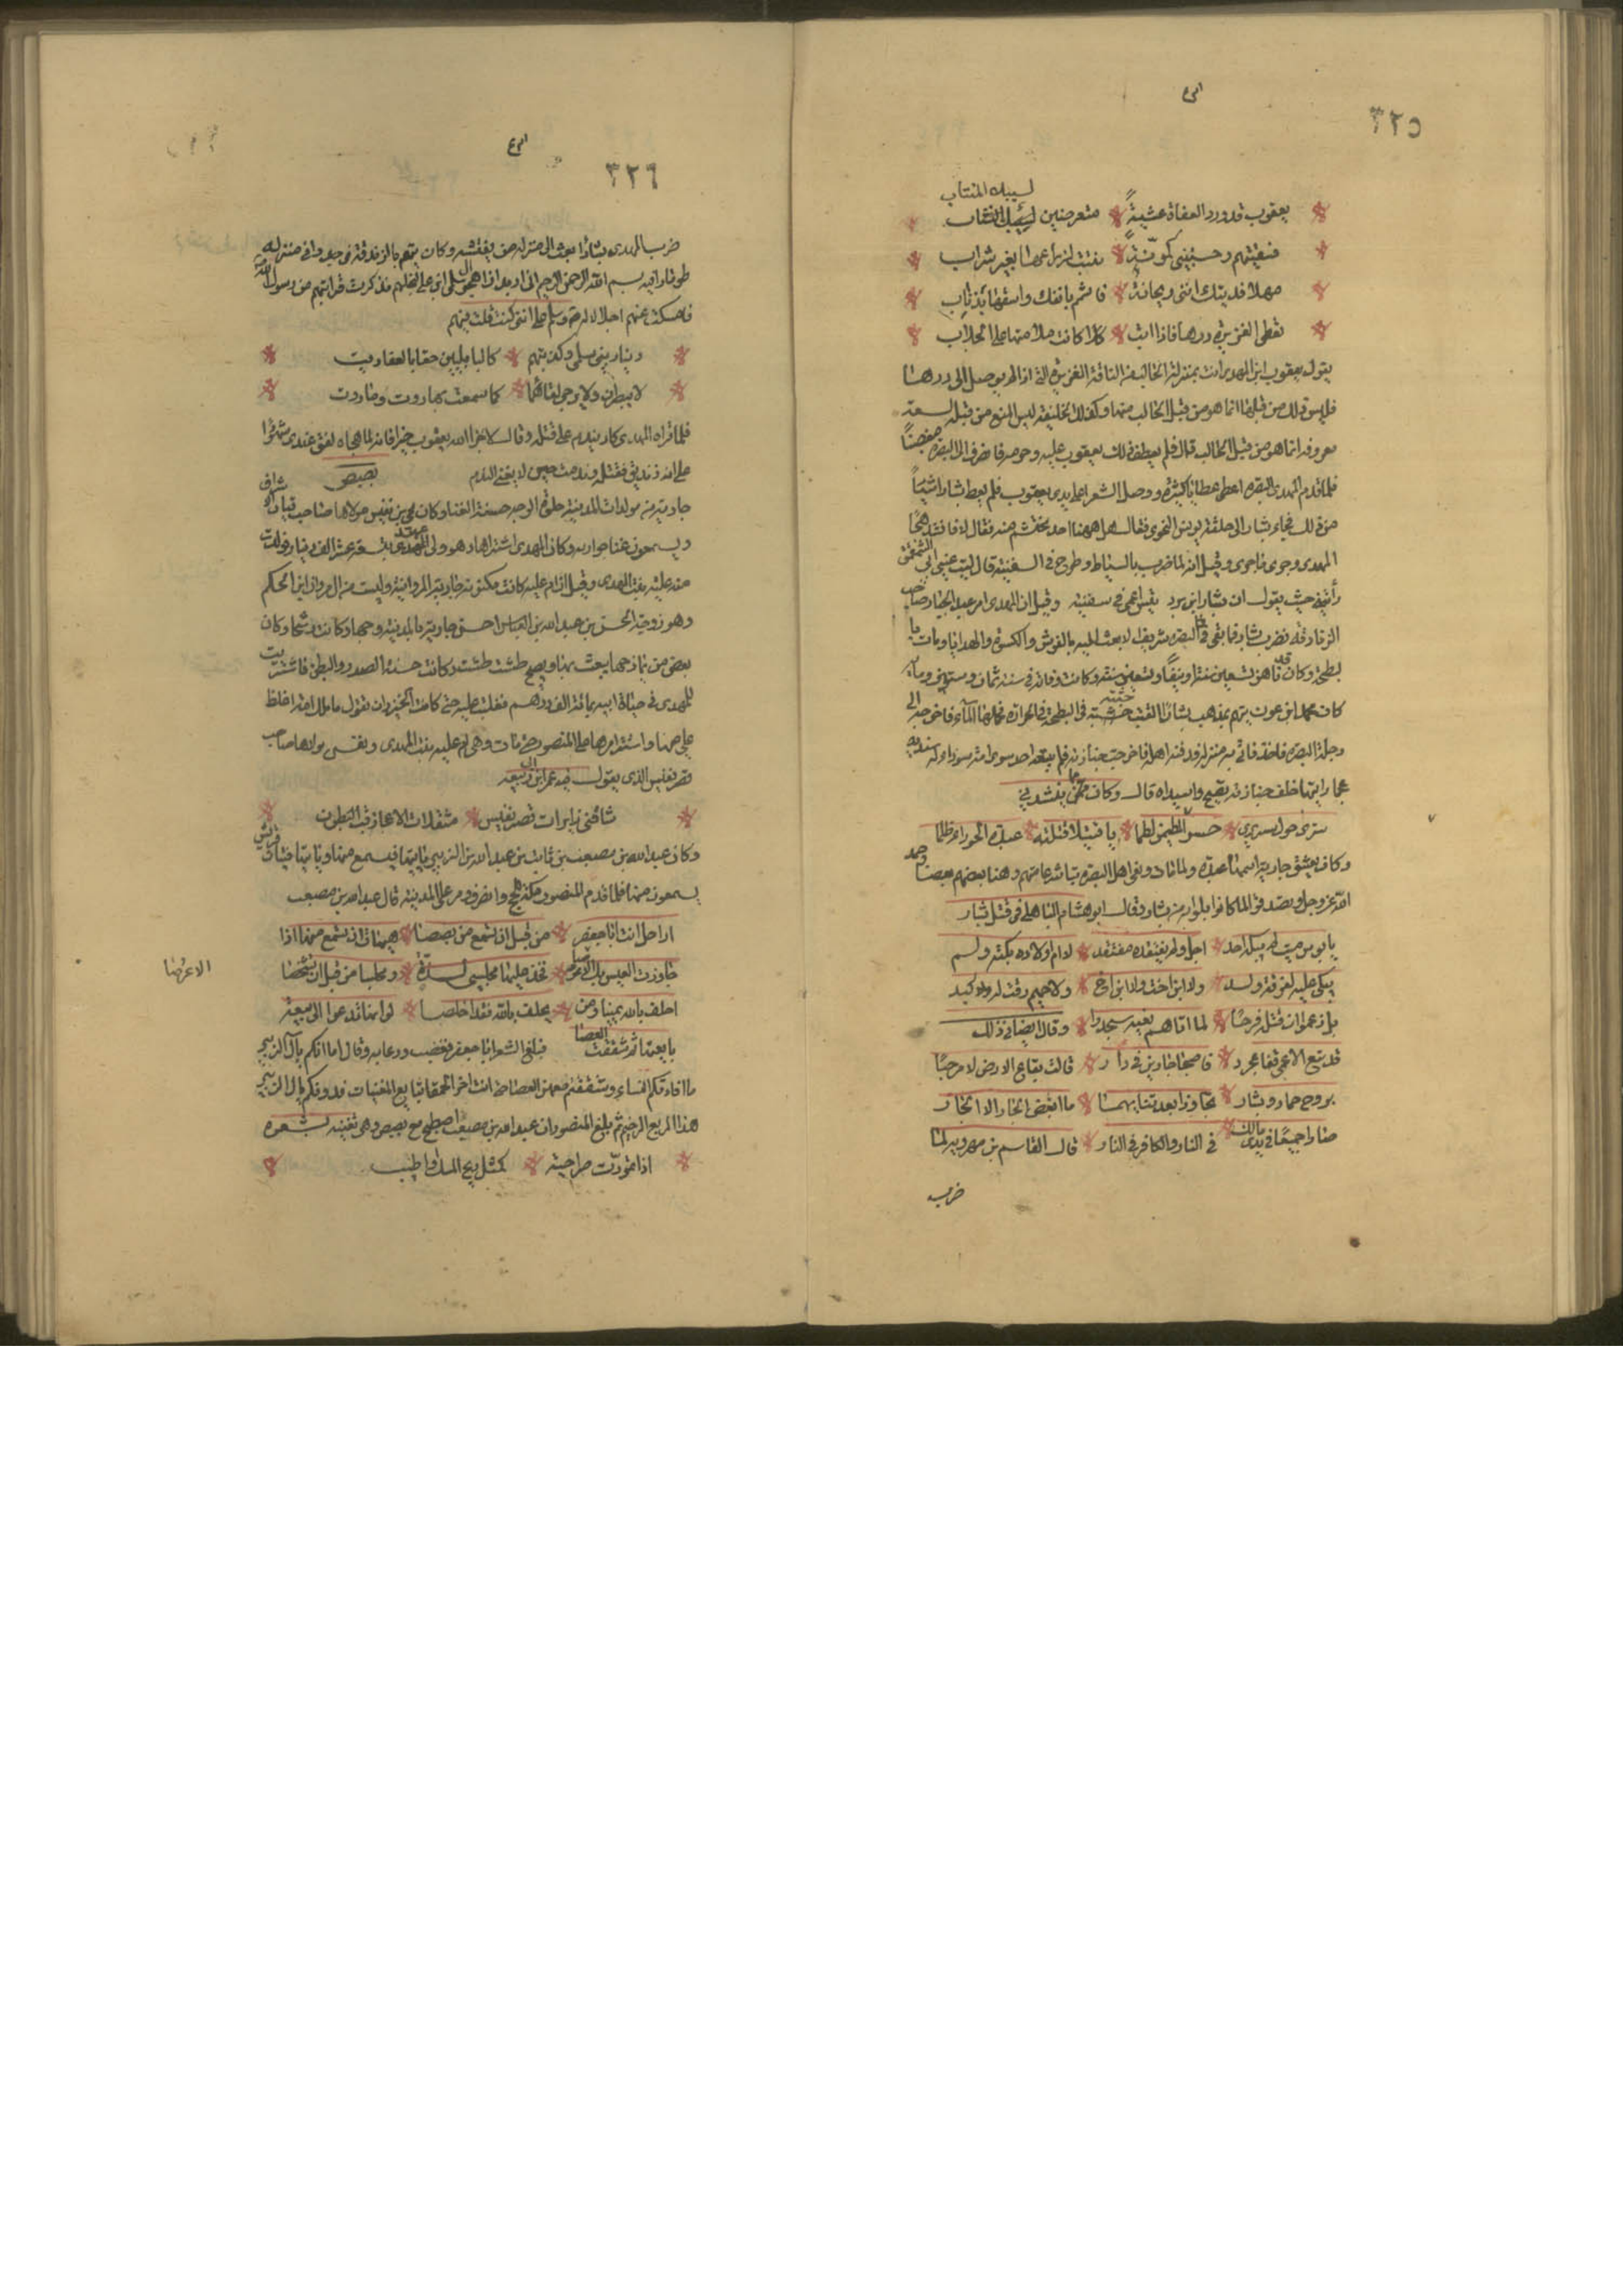 ٣٢٥
لسيبك المنتاب
يعقوب قد ورد العفاة عشية متعرضين
فسقيتهم وحسبتني كمونة نبتت لزارعها بغير شراب
مهلا فديتك انني ريحانة فاشمم بانفك واسقها بذناب
تعطى الغزيرة درها فاذا ابت كانت ملامتها على الحلاب
يقول يعقوب ابن المهدى انت بمنزلة الحالب من الناقة الغزيرة التى اذا لم يوصل الى درها
فليس ذلك من قبلها انما هو من قبل الحالب منها وكذلك الخليفة ليس المنع من قبله لسعة
معروفه انما هو من قبل الطالب قال فلم يعطف ذلك يعقوب عليه وحرمه فانصرف الى البصرة مغضبا
فلما قدم المهدى البصرة اعطى عطايا كثيرة ووصل الشعرا على يدى يعقوب فلم يعط بشارا شيئا
من ذلك فجاء بشار الى حلقة يونس النحوى فقال هل ههنا احد يحتشم منه فقال لا فانشد هجا
المهدى وجرى ماجرى وقيل انه لما ضرب بالسياط وطرح فى السفينة قال ليت عينى ابى الشمقمق
رأتنى حيث يقول ان بشار ابن برد تيس اعمى فى سفينة وقيل ان المهدى امر عبد الجبار صاحب
الزنادقة فضرب بشار فما بقى فى البصرة شريف الا بعث اليه بالفرش والكسوة والهدايا ومات با
لبطحة وكان قد ناهز تسعين سنة او نيفا وتسعين سنة وكانت وفاته فى سنة ثمان وستين ومأة
كان محمد ابن عون يتهم بمذهب بشار القيت جثته فى البطحة فى الخرارة فحملها الماء فاخرجه الى
دجلة البصرة فاخذ فاتى به منزله ودفنه اهله فاخرجت جنازته فلم يتبعه احد سوى امة سوداء له سندية
عجما رايتها خلف جنازته تصيح واسيداه قال وكان ينشد فى
سترى حول سريرى حسرا يلطمن لطما يا قتيلا قتلته عبدة الحورا ظلما
وكان يعشق جارية اسمها عبدة ولما مات ونعى اهل البصرة تباشر عامتهم وهنا بعضهم بعضا وحمد
الله عز وجل وتصدقوا لما كانوا بلوا به من بشار وقال ابو هشام الباهلى فى قتل بشار
يا بوس ميت لم يبكه احد اجل ولم يفتقده مفتقد لا ام اولاده بكته ولم
يبكى عليه لفرقة ولد ولا ابن اخت ولا ابن اخ ولا حميم رقت له ولد كبد
بل زعموا ان قتله فرحا لما اتاهم نعيه سجدوا وقال ايضا فى ذلك
قد تبع الاعمى قفا عجرد فاصبحا جارين فى دار قالت بقاع الارض لا مرحبا
بروح حماد وبشار تجاورا بعد تنايهما ما ابغض الجار الى الجار
صارا جميعا فى يدى مالك فى النار والكافر فى النار قال القاسم بن مهرويه لما
ضرب
٣٢٦
ضرب المهدى بشارا بعث الى منزله من يفتشه وكان يتهم بالزندقة فوجدوا فى منزله
طومارا فيه بسم الله الرحمن الرحيم انى اردت هجا آل سليمان ابن على لبخلهم فذكرت قرابتهم من رسول الله
فامسكت عنهم اجلالا له صلى الله عليه وسلم على اننى كنت قلت فيهم
دينار بنى سلمى وكديتهم كالبابليين حفا بالعفاريت
لا يبصران ولا يرجى لقائهما كما سمعت بهاروت وماروت
فلما قراه المهدى كاد يندم على قتله وقال لا جزا الله يعقوب خيرا فانه لما هجاه لفق عندى شهودا
على انه زنديق فقتلته وندمت حين لا يغنى الندم بصبص
جارية من مولدات المدينة حلوة الوجه حسنة الغنا وكان يحيى بن نفيس مولاها صاحب قيان
ويسمعون غنا جواريه وكان المهدى اشتراها وهو ولى العهد بسبعة عشر الف دينار فولدت
منه علية بنت المهدى وقيل ان ام علية كانت مكنونة جارية المروانية وليست من ال مروان ابن الحكم
وهو زوجة الحسن بن عبد الله بن العباس احسن جارية بالمدينة وجها وكانت رسحا وكان
بعض من يمازحها يعبث بها ويصيح طشت طشت وكانت حسنة الصدر والبطن فاشتريت
للمهدى فى حياة ابيه بمائة الف درهم فغلبت عليه حتى كانت الخيزران تقول ما ملك امة اغلظ
على منها واستتر امرها على المنصور حتى مات وهى ام علية بنت المهدى ونفيس مولاها صاحب
قصر نفيس الذى يقول فيه عمر ابن ابى ربيعة
شاقنى زايرات قصر نفيس مثقلات الاعجاز قب البطون
وكان عبد الله بن مصعب بن ثابت بن عبد الله بن الزبير ياتيها فيسمع منها وياتيها فتيان قريش
يسمعون منها فلما قدم المنصور مكة للحج وانصرف ومر على المدينة قال عبد الله بن مصعب
اراحل انت ابا جعفر من قبل ان تسمع من بصبصا هيهات ان تسمع منها اذا
جاوزت العيس بك الاعوصا فخذ عليها مجلسى لذة ومجلسا من قبل ان تشخصا
احلف بالله يمينا ومن يحلف بالله فقد اخلصا لو انها تدعوا الى بيعة
بايعتها ثم شققت العصا فبلغ الشعر ابا جعفر فغضب ودعا به وقال اما انكم يا آل الزبير
ما قادتكم النساء وشققتم معهن العصا حتى انت اخر الحمقا تبايع المغنيات فدونكم يا ال الزبير
هذا المربع الوخيم ثم بلغ المنصور ان عبد الله بن مصعب اصطبح مع بصبص وهى تغنيه بشعره
اذا تمززت صراحية كمثل ريح المسك او اطيب